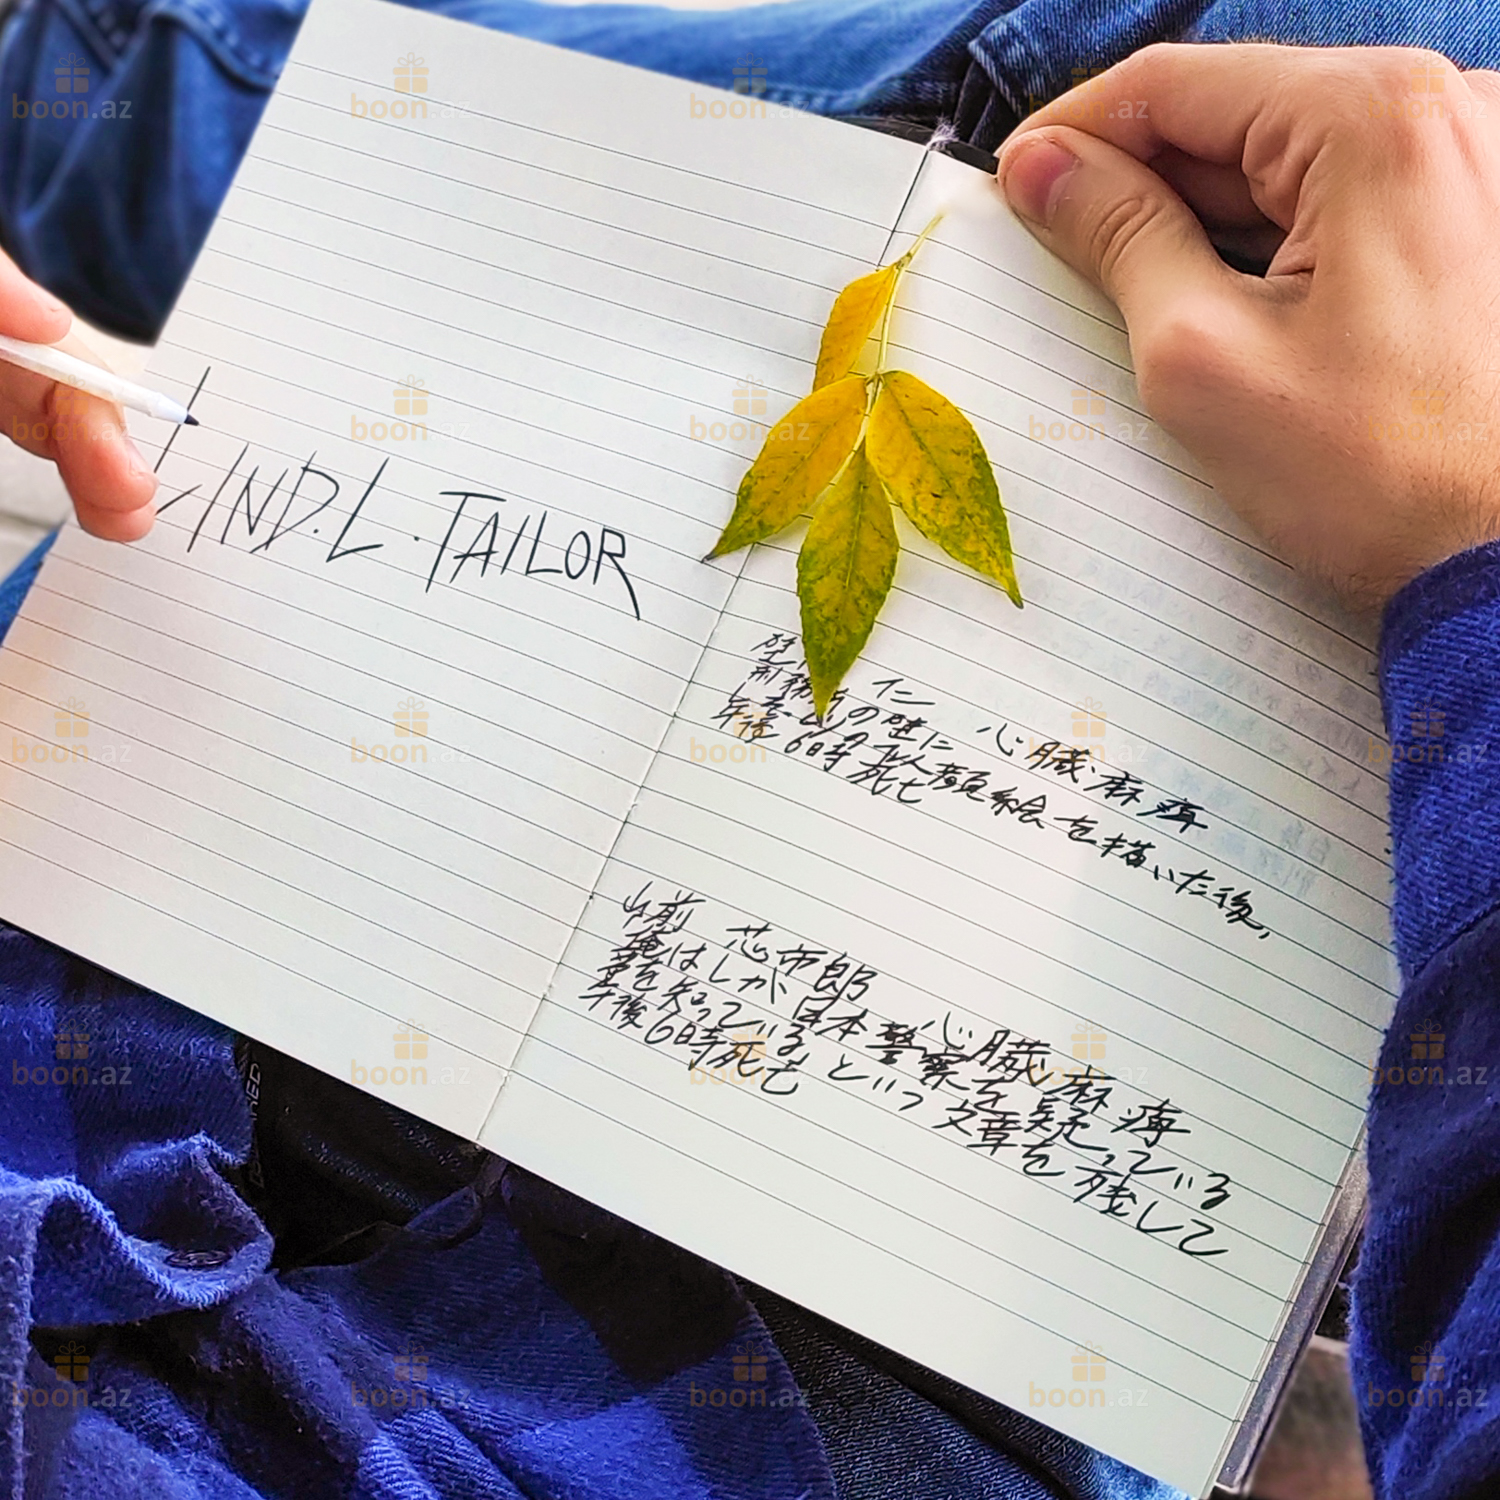 LIND.L.TAILOR
仁 心臓麻痺
刑務所の壁に
の似顔絵を描いた後,
午後6時死亡
山前 芯市郎 心臓麻痺
俺はしが日本警察を疑っている
事を知っているという文章を残して
午後6時死亡
boon.az